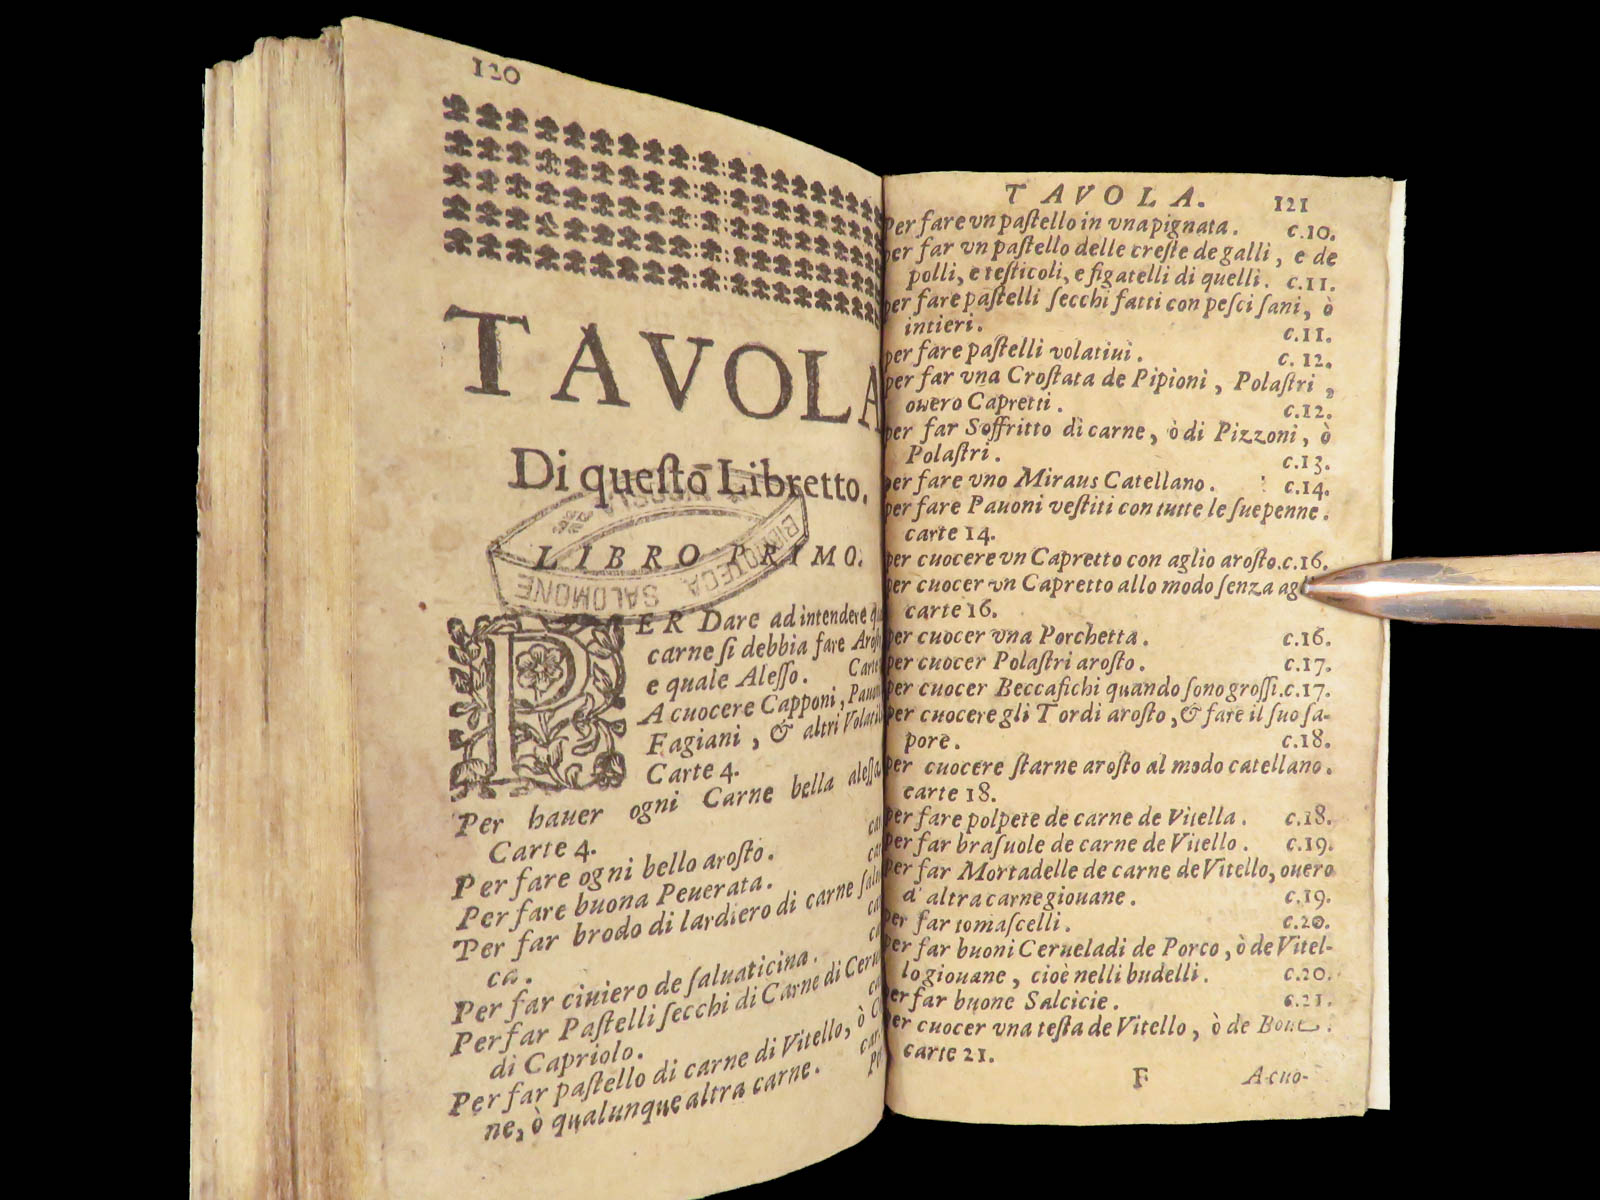 120
TAVOLA
Di questo Libretto.
LIBRO PRIMO.
BIBLIOTECA SALOMONE
PER Dare ad intendere
carne ſi debbia fare
e quale Aleſſo. Carte
A cuocere Capponi,
Fagiani, & altri
Carte 4.
Per hauer ogni Carne bella
Carte 4.
Per fare ogni bello aroſto.
Per fare buona Peuerata.
Per far brodo di lardiero di carne
ca.
Per far ciuiero de ſaluaticina.
Per far Paſtelli ſecchi di Carne di
di Capriolo.
Per far paſtello di carne di Vitello, ò
ne, ò qualunque altra carne.
TAVOLA. 121
Per fare vn paſtello in vna pignata. c.10.
Per far vn paſtello delle creſte de galli, e de
polli, e teſticoli, e figatelli di quelli. c.11.
Per fare paſtelli ſecchi fatti con peſci ſani, ò
intieri. c.11.
Per fare paſtelli volatiui. c. 12.
Per far vna Croſtata de Pipioni, Polaſtri,
ouero Capretti. c.12.
Per far Soffritto di carne, ò di Pizzoni, ò
Polaſtri. c.13.
Per fare vno Miraus Catellano. c.14.
Per fare Pauoni veſtiti con tutte le ſue penne.
carte 14.
Per cuocere vn Capretto con aglio aroſto.c.16.
Per cuocer vn Capretto allo modo ſenza
carte 16.
Per cuocer vna Porchetta. c.16.
Per cuocer Polaſtri aroſto. c.17.
Per cuocer Beccafichi quando ſono groſſi.c.17.
Per cuocere gli Tordi aroſto, & fare il ſuo ſa-
pore. c.18.
Per cuocere ſtarne aroſto al modo catellano.
carte 18.
Per fare polpete de carne de Vitella. c.18.
Per far braſuole de carne de Vitello. c.19.
Per far Mortadelle de carne de Vitello, ouero
d'altra carne giouane. c.19.
Per far tomaſcelli. c.20.
Per far buoni Cerueladi de Porco, ò de Vitel-
lo giouane, cioè nelli budelli. c.20.
Per far buone Salcicie. c.21.
Per cuocer vna teſta de Vitello, ò de
carte 21.
F A cuo-